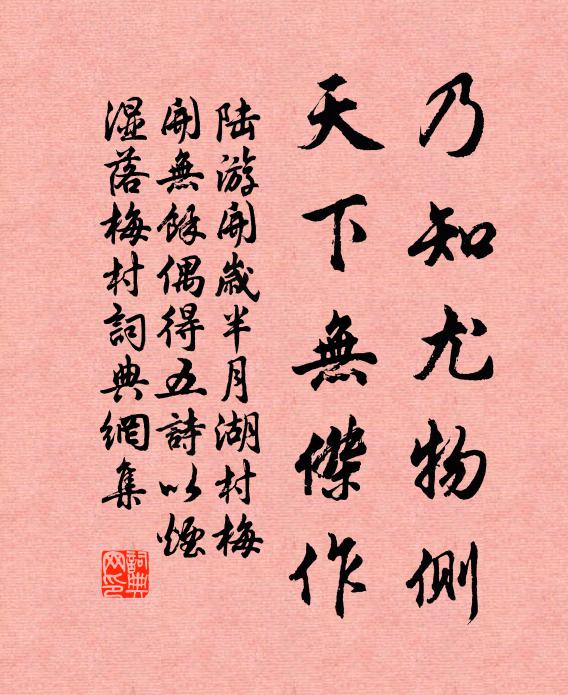 乃知尤物側
天下無傑作
陸游開歲半月湖村梅
開無餘偶得五詩以煙
濕落梅村詞典網集
詞典
网印